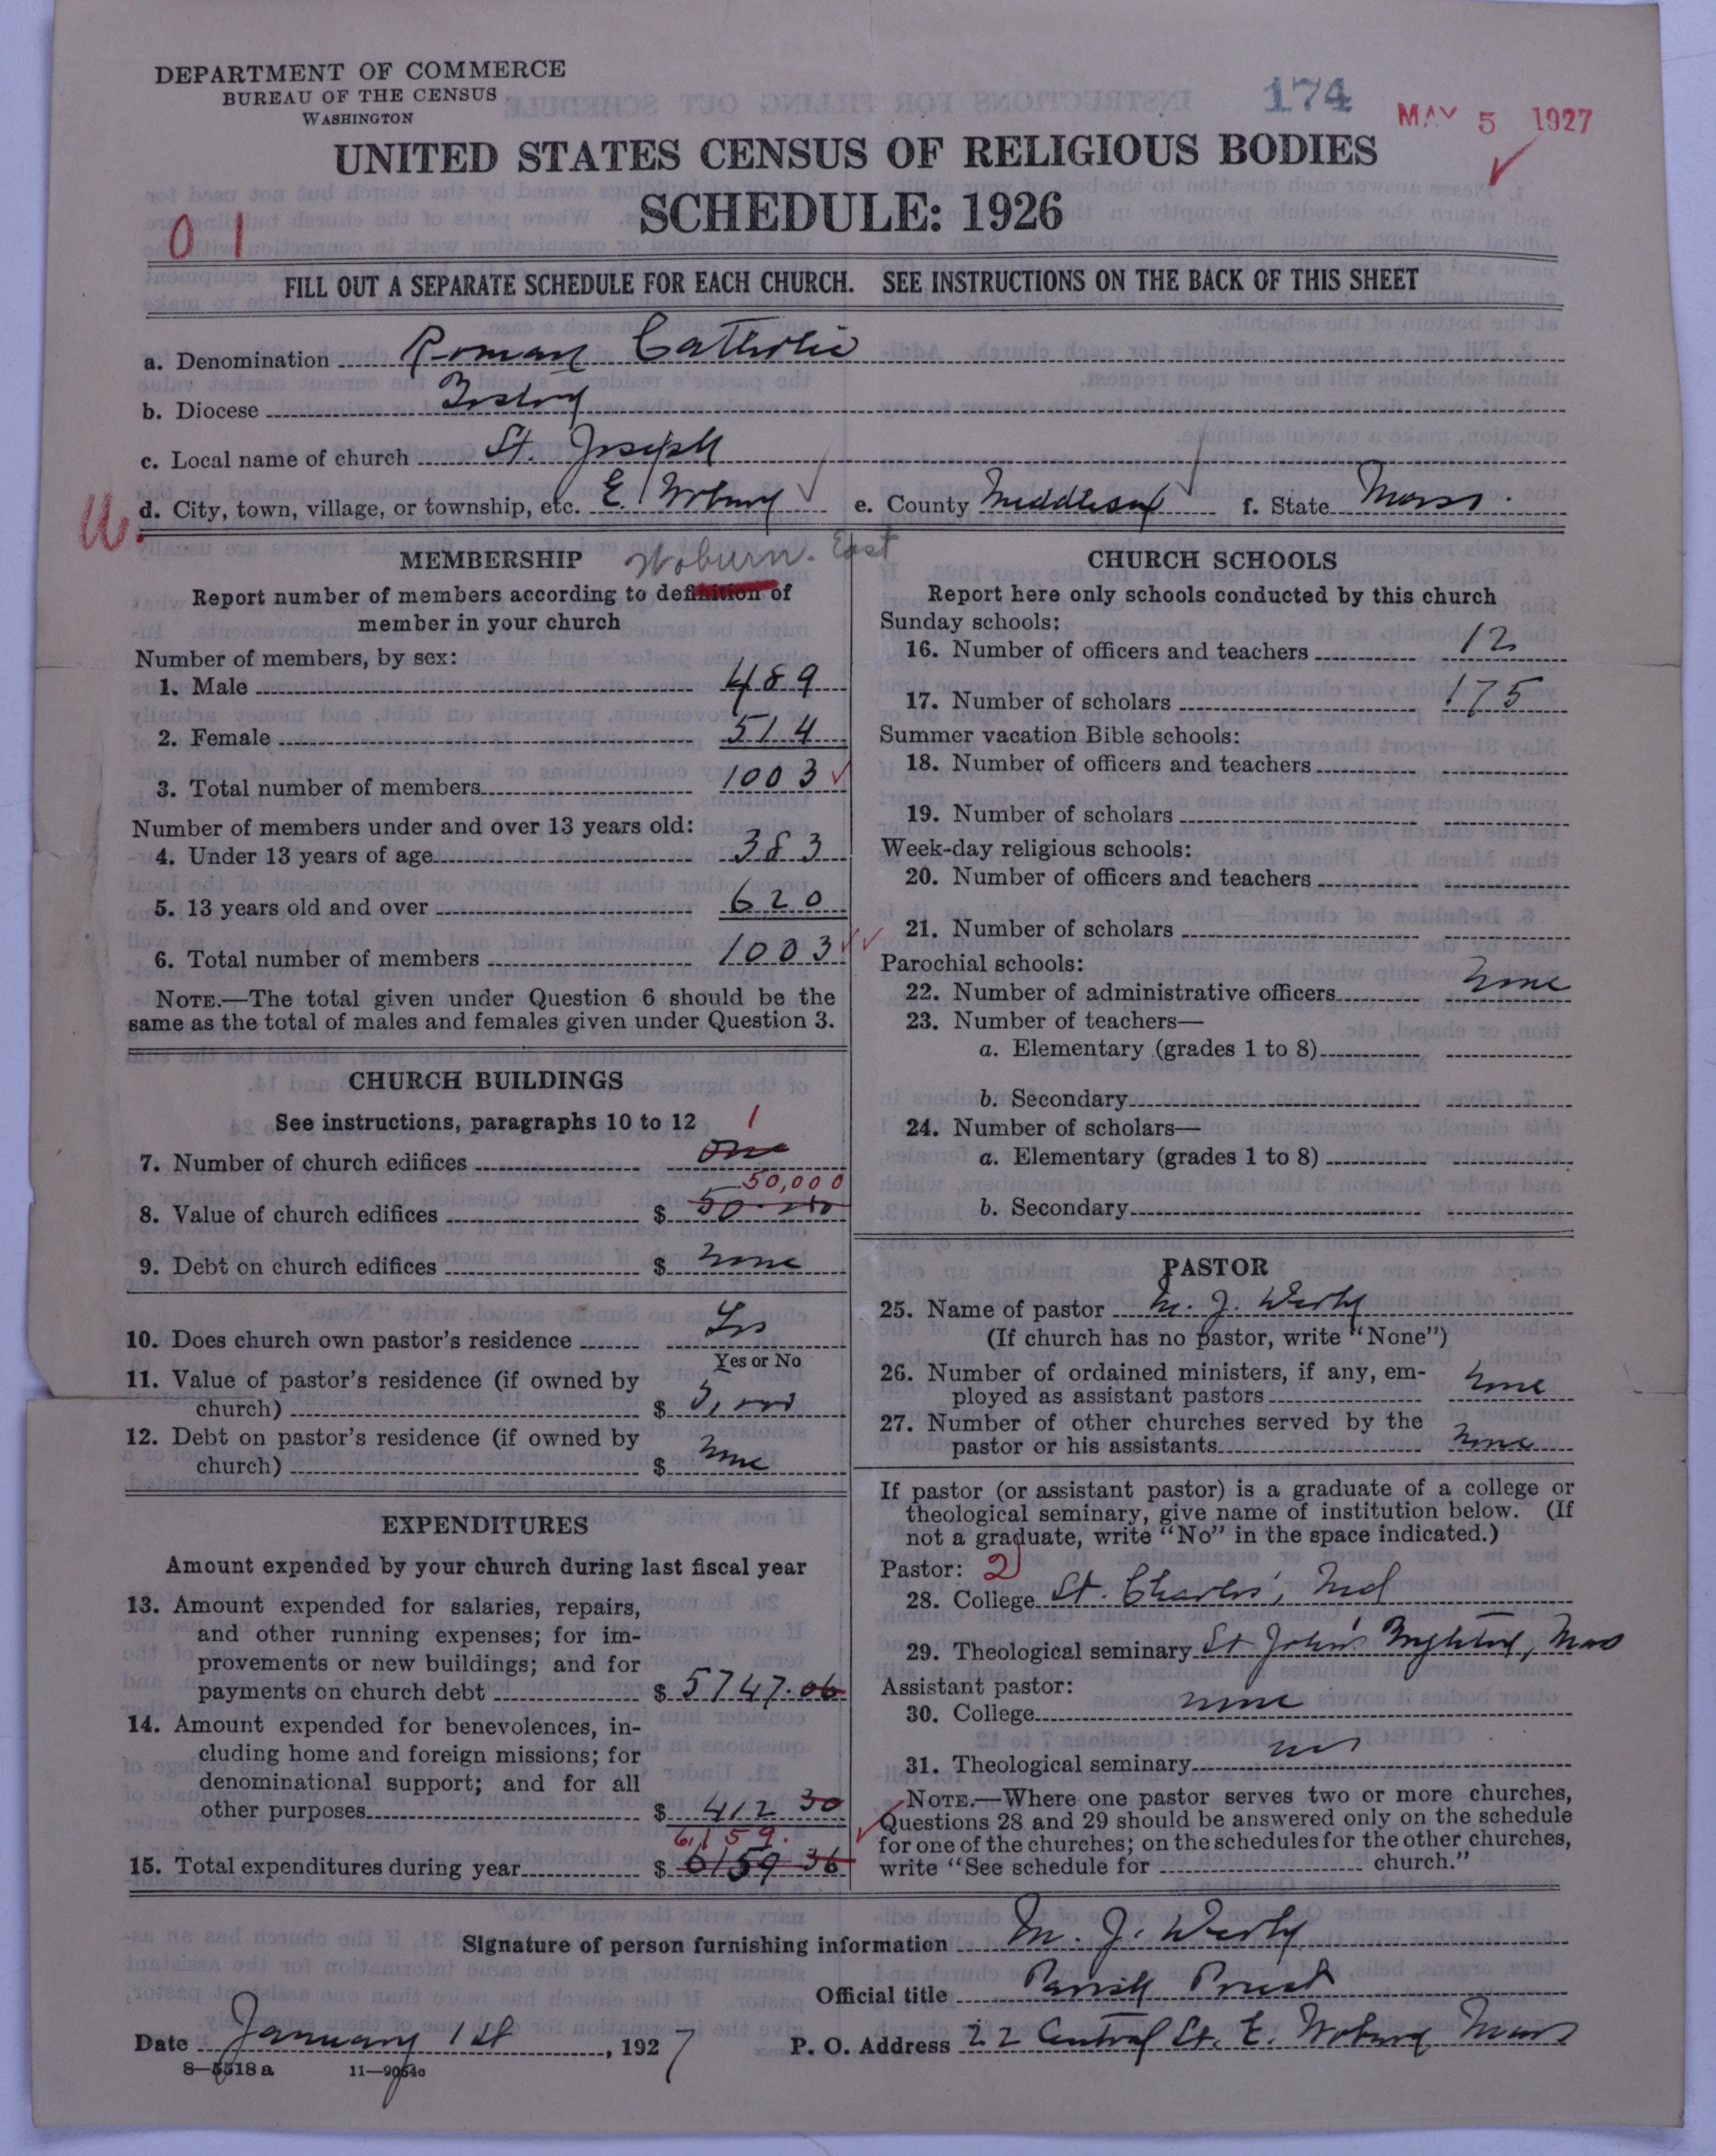 DEPARTMENT OF COMMERCE
BUREAU OF THE CENSUS
WASHINGTON
174
MAY 5 1927
UNITED STATES CENSUS OF RELIGIOUS BODIES
SCHEDULE: 1926
0 1
FILL OUT A SEPARATE SCHEDULE FOR EACH CHURCH. SEE INSTRUCTIONS ON THE BACK OF THIS SHEET
a. Denomination Roman Catholic
b. Diocese Boston
c. Local name of church St. Joseph
d. City, town, village, or township, etc. E. Woburn e. County Middlesex f. State Mass.
Woburn. East
MEMBERSHIP
Report number of members according to definition of
member in your church
Number of members, by sex:
1. Male 489
2. Female 514
3. Total number of members 1003
Number of members under and over 13 years old:
4. Under 13 years of age 383
5. 13 years old and over 620
6. Total number of members 1003
NOTE.—The total given under Question 6 should be the
same as the total of males and females given under Question 3.
CHURCH BUILDINGS
See instructions, paragraphs 10 to 12
1
7. Number of church edifices One
50,000
8. Value of church edifices $ 50.000
9. Debt on church edifices $ none
10. Does church own pastor's residence Yes
Yes or No
11. Value of pastor's residence (if owned by
church) $ 5,000
12. Debt on pastor's residence (if owned by
church) $ none
EXPENDITURES
Amount expended by your church during last fiscal year
13. Amount expended for salaries, repairs,
and other running expenses; for im-
provements or new buildings; and for
payments on church debt $ 5747.06
14. Amount expended for benevolences, in-
cluding home and foreign missions; for
denominational support; and for all
other purposes $ 412 30
6,159.
15. Total expenditures during year $ 6159 36
CHURCH SCHOOLS
Report here only schools conducted by this church
Sunday schools:
16. Number of officers and teachers 12
17. Number of scholars 175
Summer vacation Bible schools:
18. Number of officers and teachers
19. Number of scholars
Week-day religious schools:
20. Number of officers and teachers
21. Number of scholars
Parochial schools:
22. Number of administrative officers none
23. Number of teachers—
a. Elementary (grades 1 to 8)
b. Secondary
24. Number of scholars—
a. Elementary (grades 1 to 8)
b. Secondary
PASTOR
25. Name of pastor M. J.
(If church has no pastor, write "None")
26. Number of ordained ministers, if any, em-
ployed as assistant pastors none
27. Number of other churches served by the
pastor or his assistants none
If pastor (or assistant pastor) is a graduate of a college or
theological seminary, give name of institution below. (If
not a graduate, write "No" in the space indicated.)
Pastor: 2
28. College St. Charles', Md
29. Theological seminary St John's Brighton, Mass
Assistant pastor:
30. College none
31. Theological seminary
NOTE.—Where one pastor serves two or more churches,
Questions 28 and 29 should be answered only on the schedule
for one of the churches; on the schedules for the other churches,
write "See schedule for church."
Signature of person furnishing information M. J.
Official title Parish Priest
Date January 1st, 1927 P. O. Address 22 Central St. E. Woburn Mass
8—5518 a 11—9054c